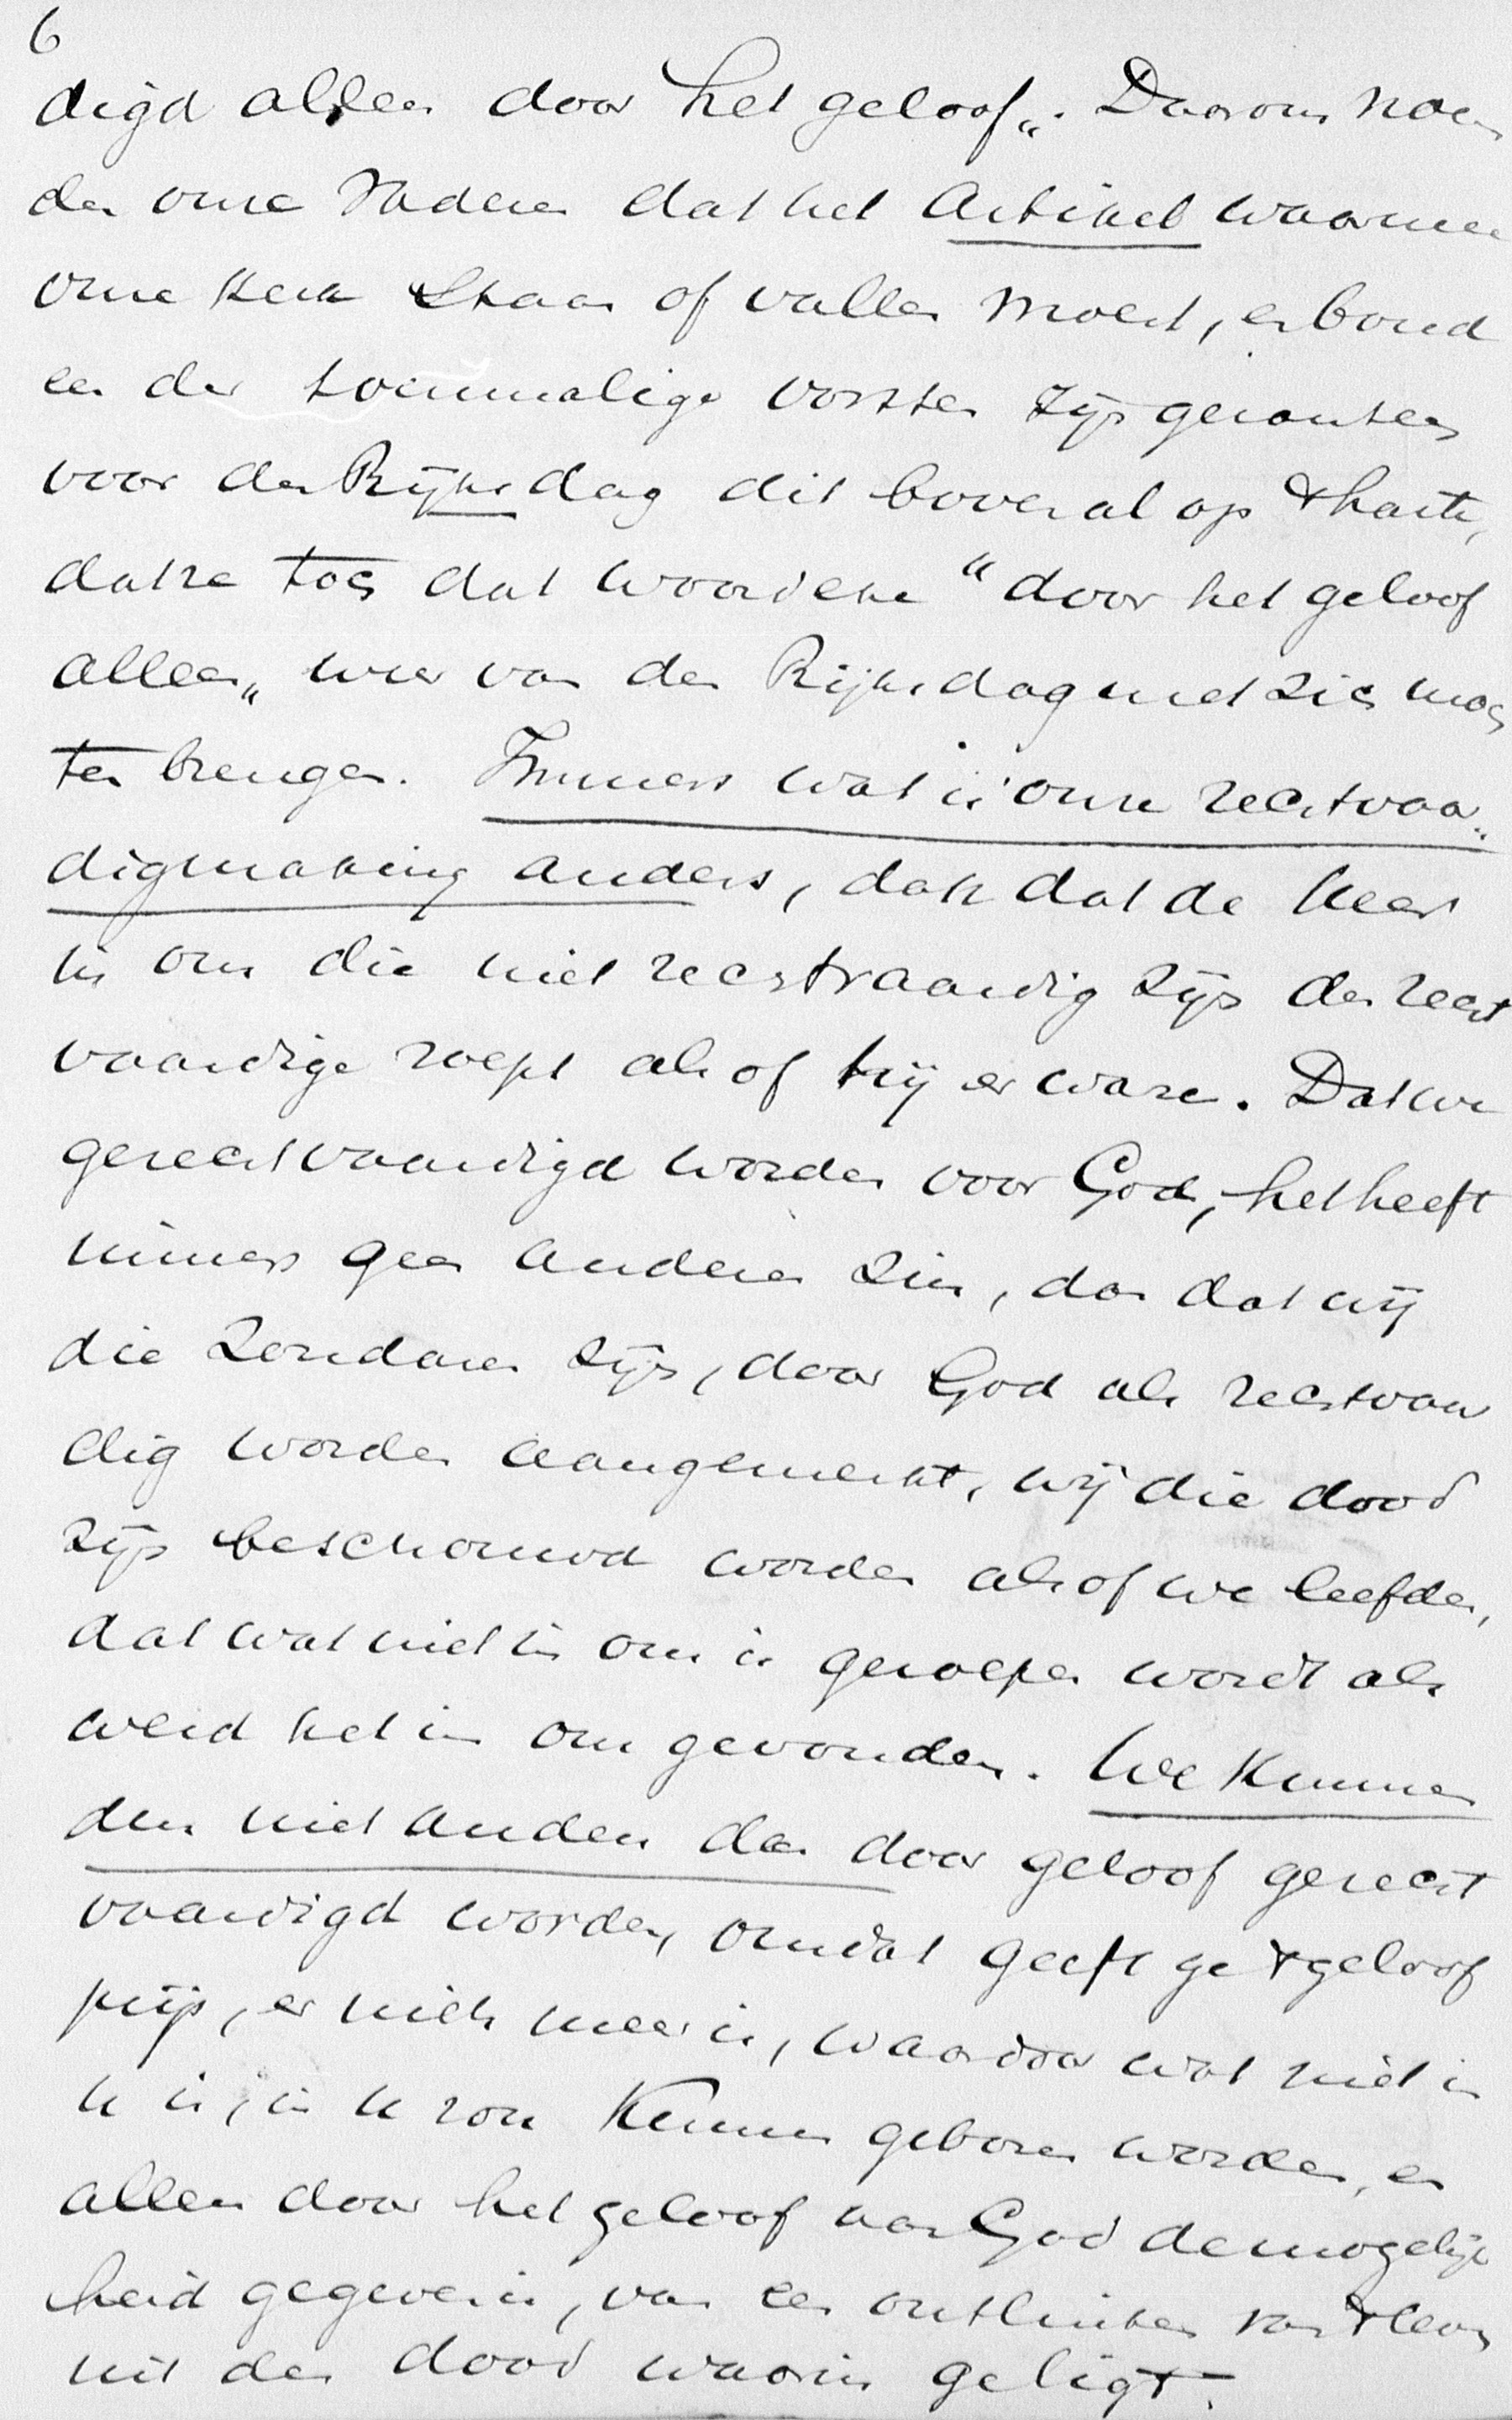 6
digd alleen door het geloof„. Daarom noem
den onze Vaderen dat het Artikel waarmee
onze kerk staan of vallen moest, en bond
een der toenmalige vorsten zijn gezanten
voor den Rijksdag dit bovenal op 't harte,
dat ze toch dat woordeke "door het geloof
alleen„ weer van den Rijksdag met zich moch
ten brengen. Immers wat is onze rechtvaar„
digmaking anders, dan dat de Heer
in ons die niet rechtvaardig zijn den recht
vaardige roept alsof hij er ware. Dat we
gerechtvaardigd worden voor God, het heeft
immers geen anderen zin, dan dat wij
die zondaren zijn, door God als rechtvaar
dig worden aangemerkt, wij die dood
zijn beschouwd worden alsof we leefden,
dat wat niet in ons is geroepen wordt als
werd het in ons gevonden. We kunnen
dus niet anders dan door geloof gerecht
vaardigd worden, omdat geeft ge 't geloof
prijs, er niets meer is, waardoor wat niet in
u is, in u zou kunnen geboren worden, en
alleen door het geloof van God de mogelijk
heid gegeven is, van een ontluiken van 't leven
uit den dood waarin ge ligt.